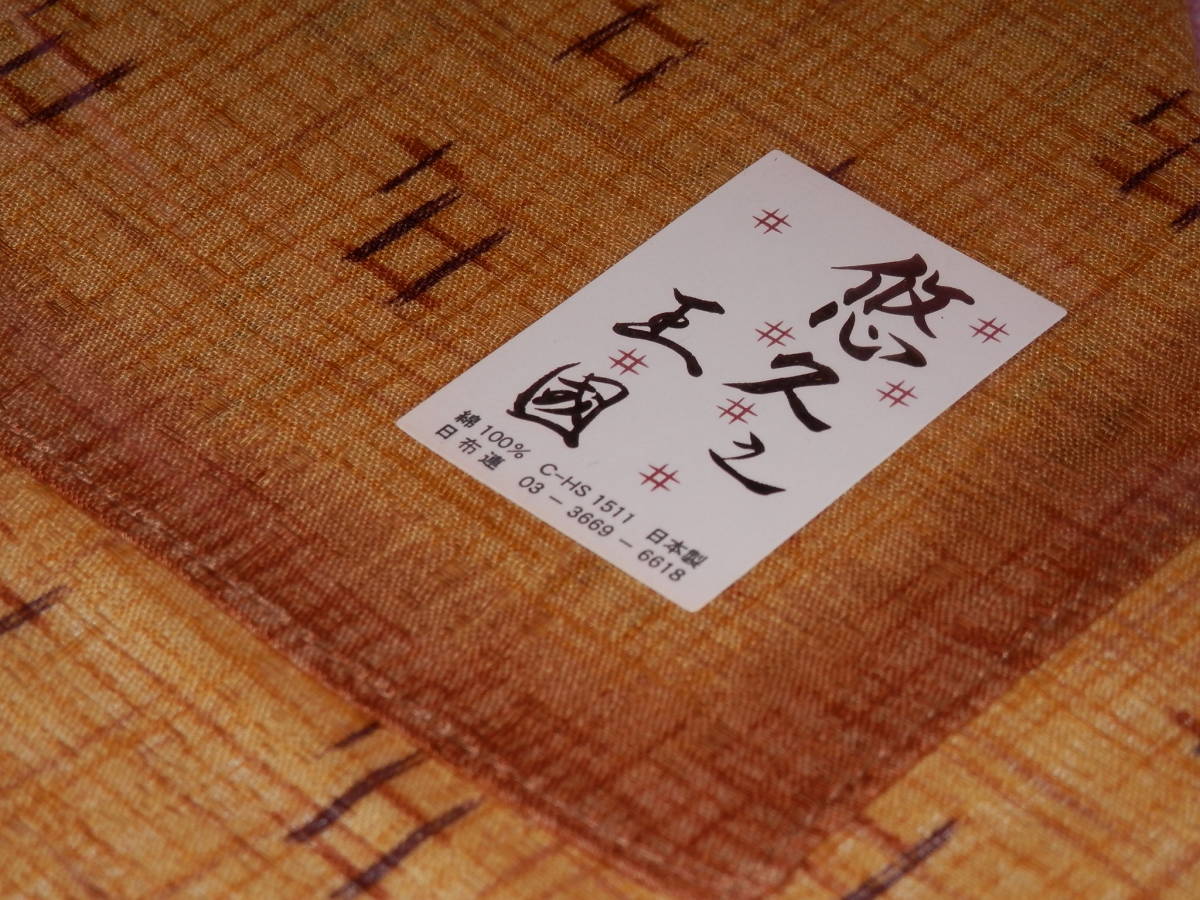 悠久之
王國
綿100% C-HS 1511 日本製
日布連 03-3669-6618